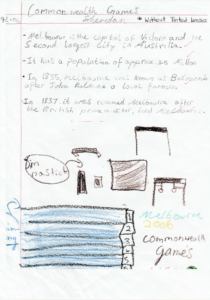 Commonwealth Games
* Without Tinted Lenses
- Melbourne is the capital of Victoria and the
second largest city in Australia.
- It has a population of approx
- In 1835, Melbourne was known as
after John a local
In 1837 it was renamed Melbourne after
the British prime minister, Lord Melbourne.
I'm
1
2
3
4
5
Melbourne
2006
Commonwealth
Games